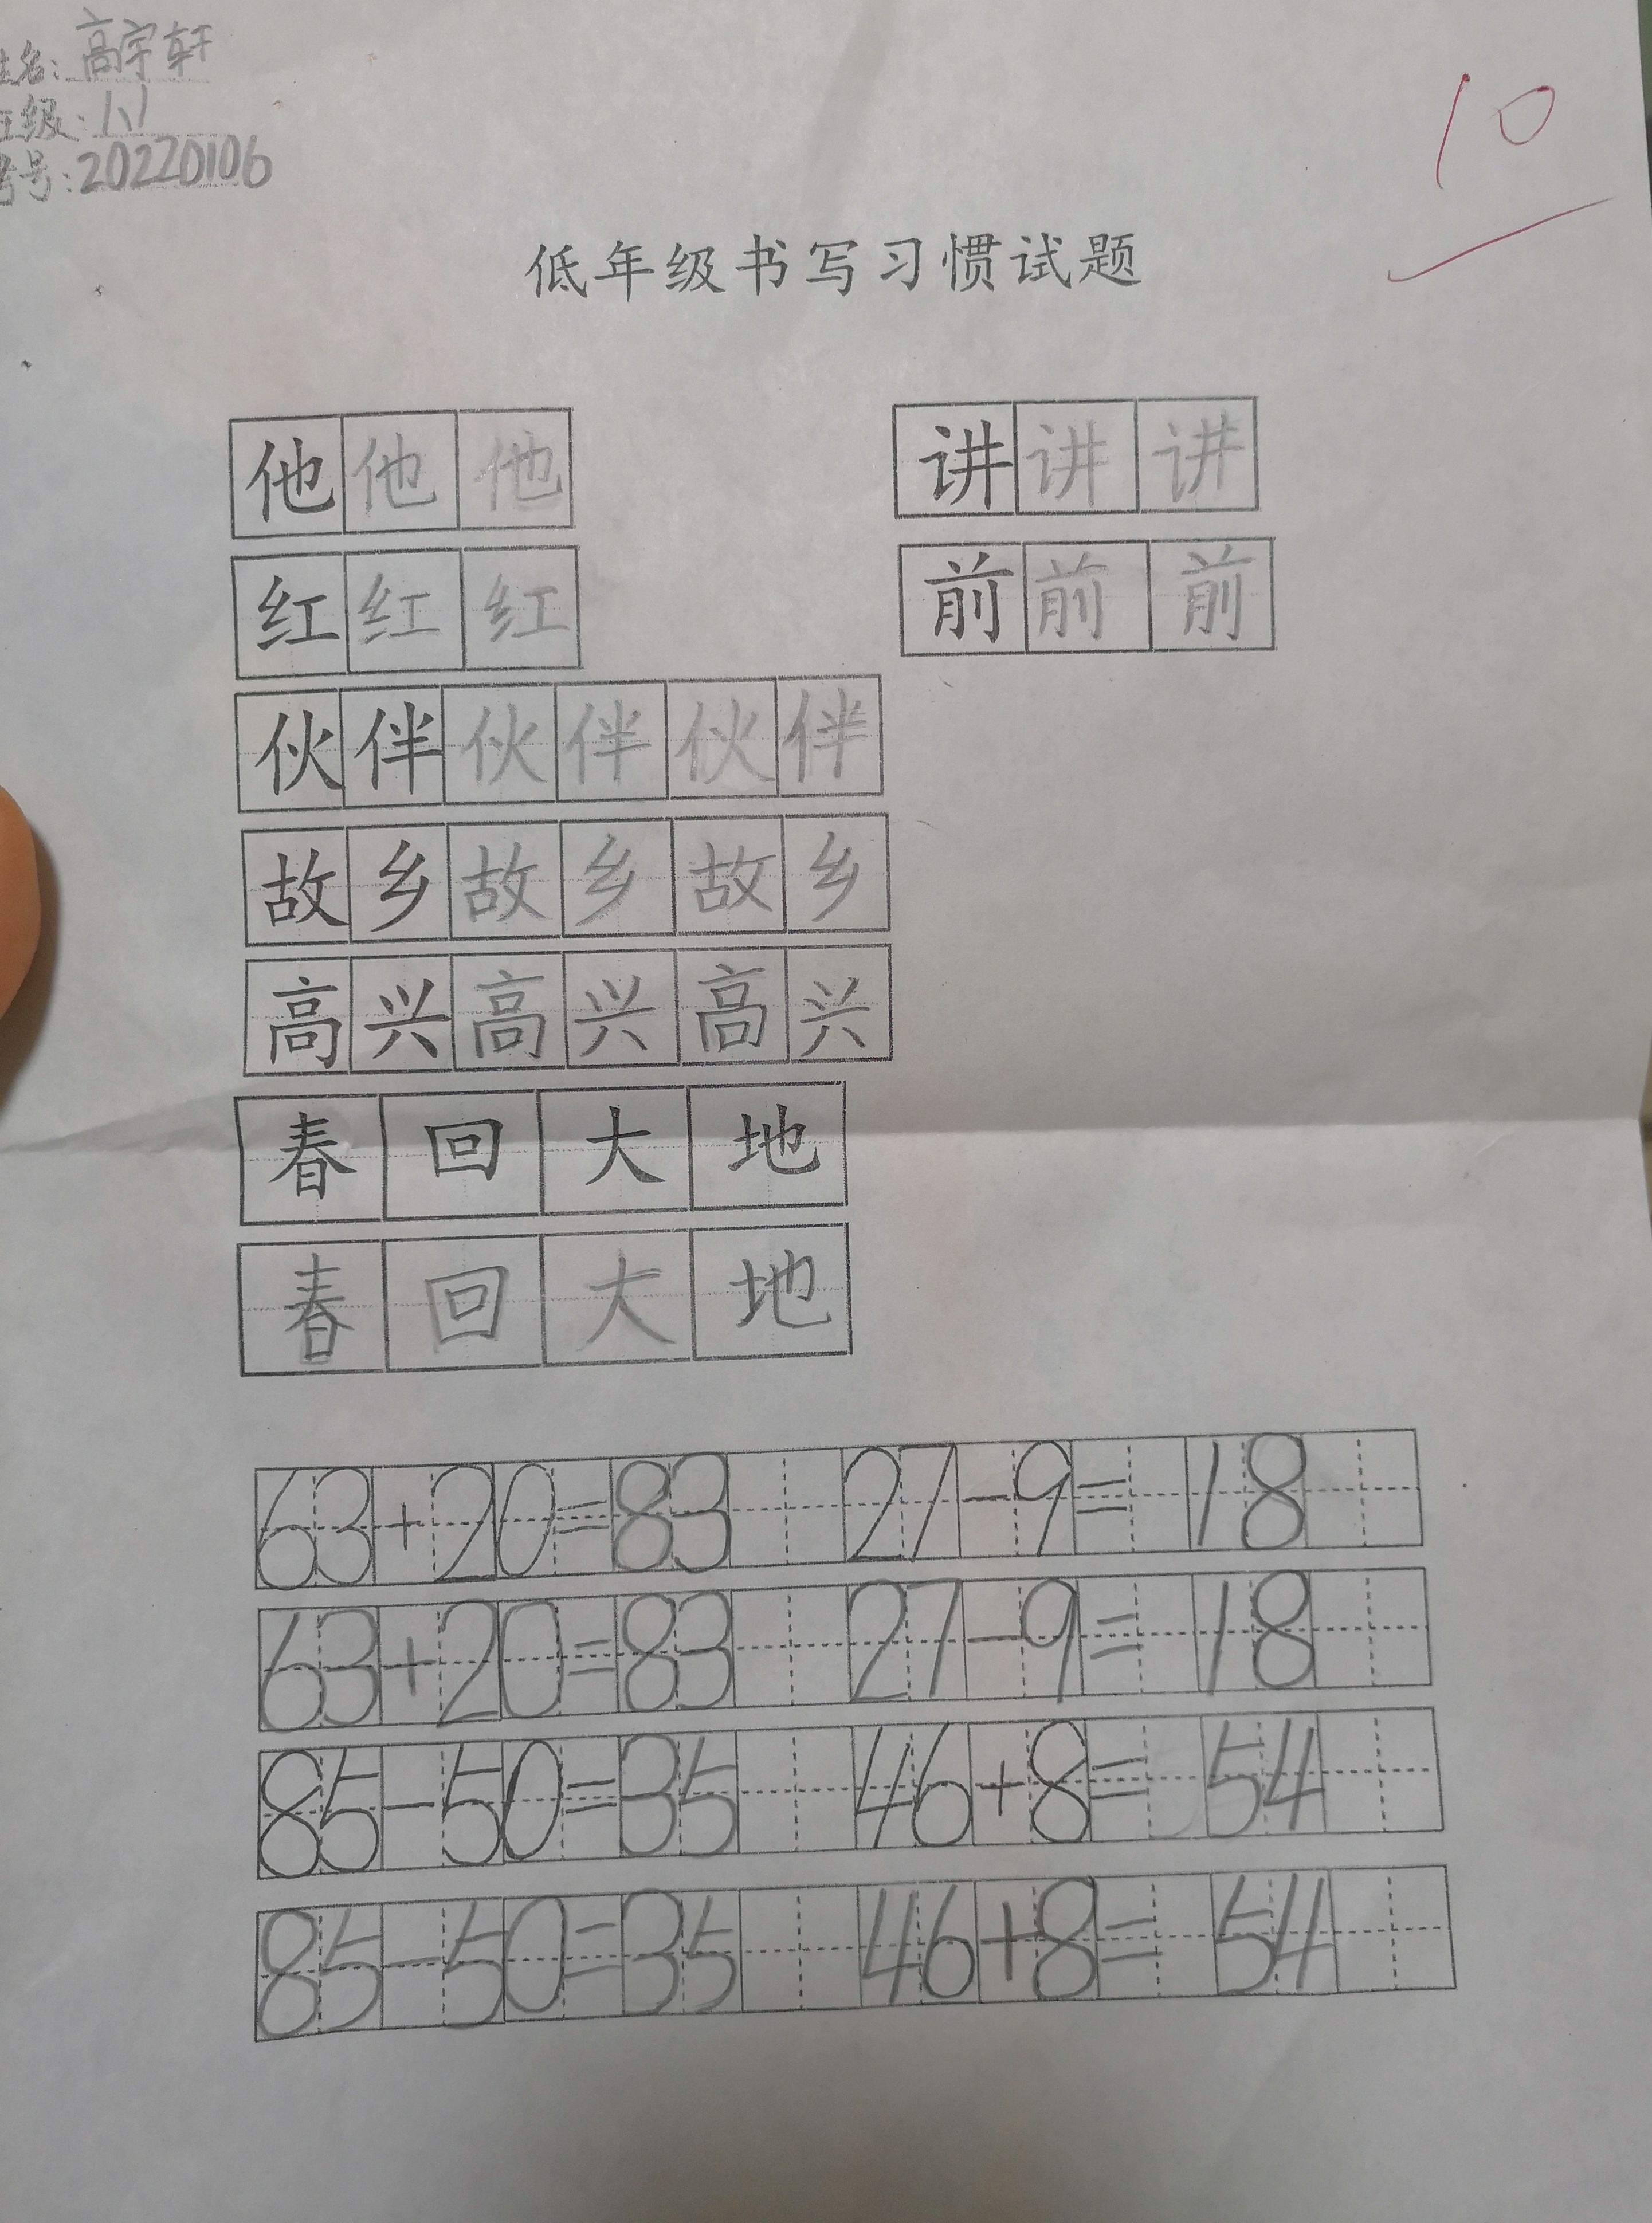 姓名：高宇轩
班级：1、1
考号：20220106
10
低年级书写习惯试题
他他他 讲讲讲
红红红 前前前
伙伴伙伴伙伴
故乡故乡故乡
高兴高兴高兴
春回大地
春回大地
63+20=83 27-9=18
63+20=83 27-9=18
85-50=35 46+8=54
85-50=35 46+8=54